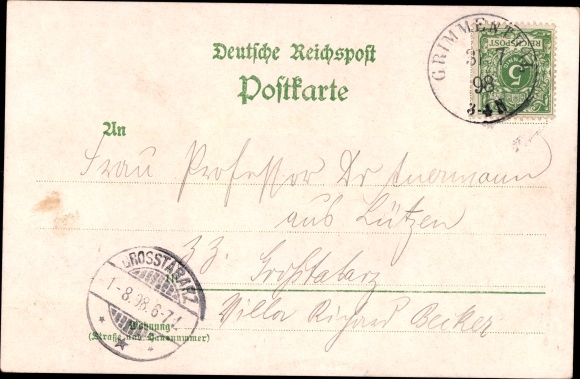 Deutsche Reichspost
Postkarte
GRIMMENTHAL
31
98
3-4 N
REICHSPOST
5
An
Frau Professor Dr Auermann
aus Lützen
zZ. Großtabarz
Villa Richard Becker
GROSSTABARZ
1-8.98.6-7
in
Wohnung
(Straße und Hausnummer)